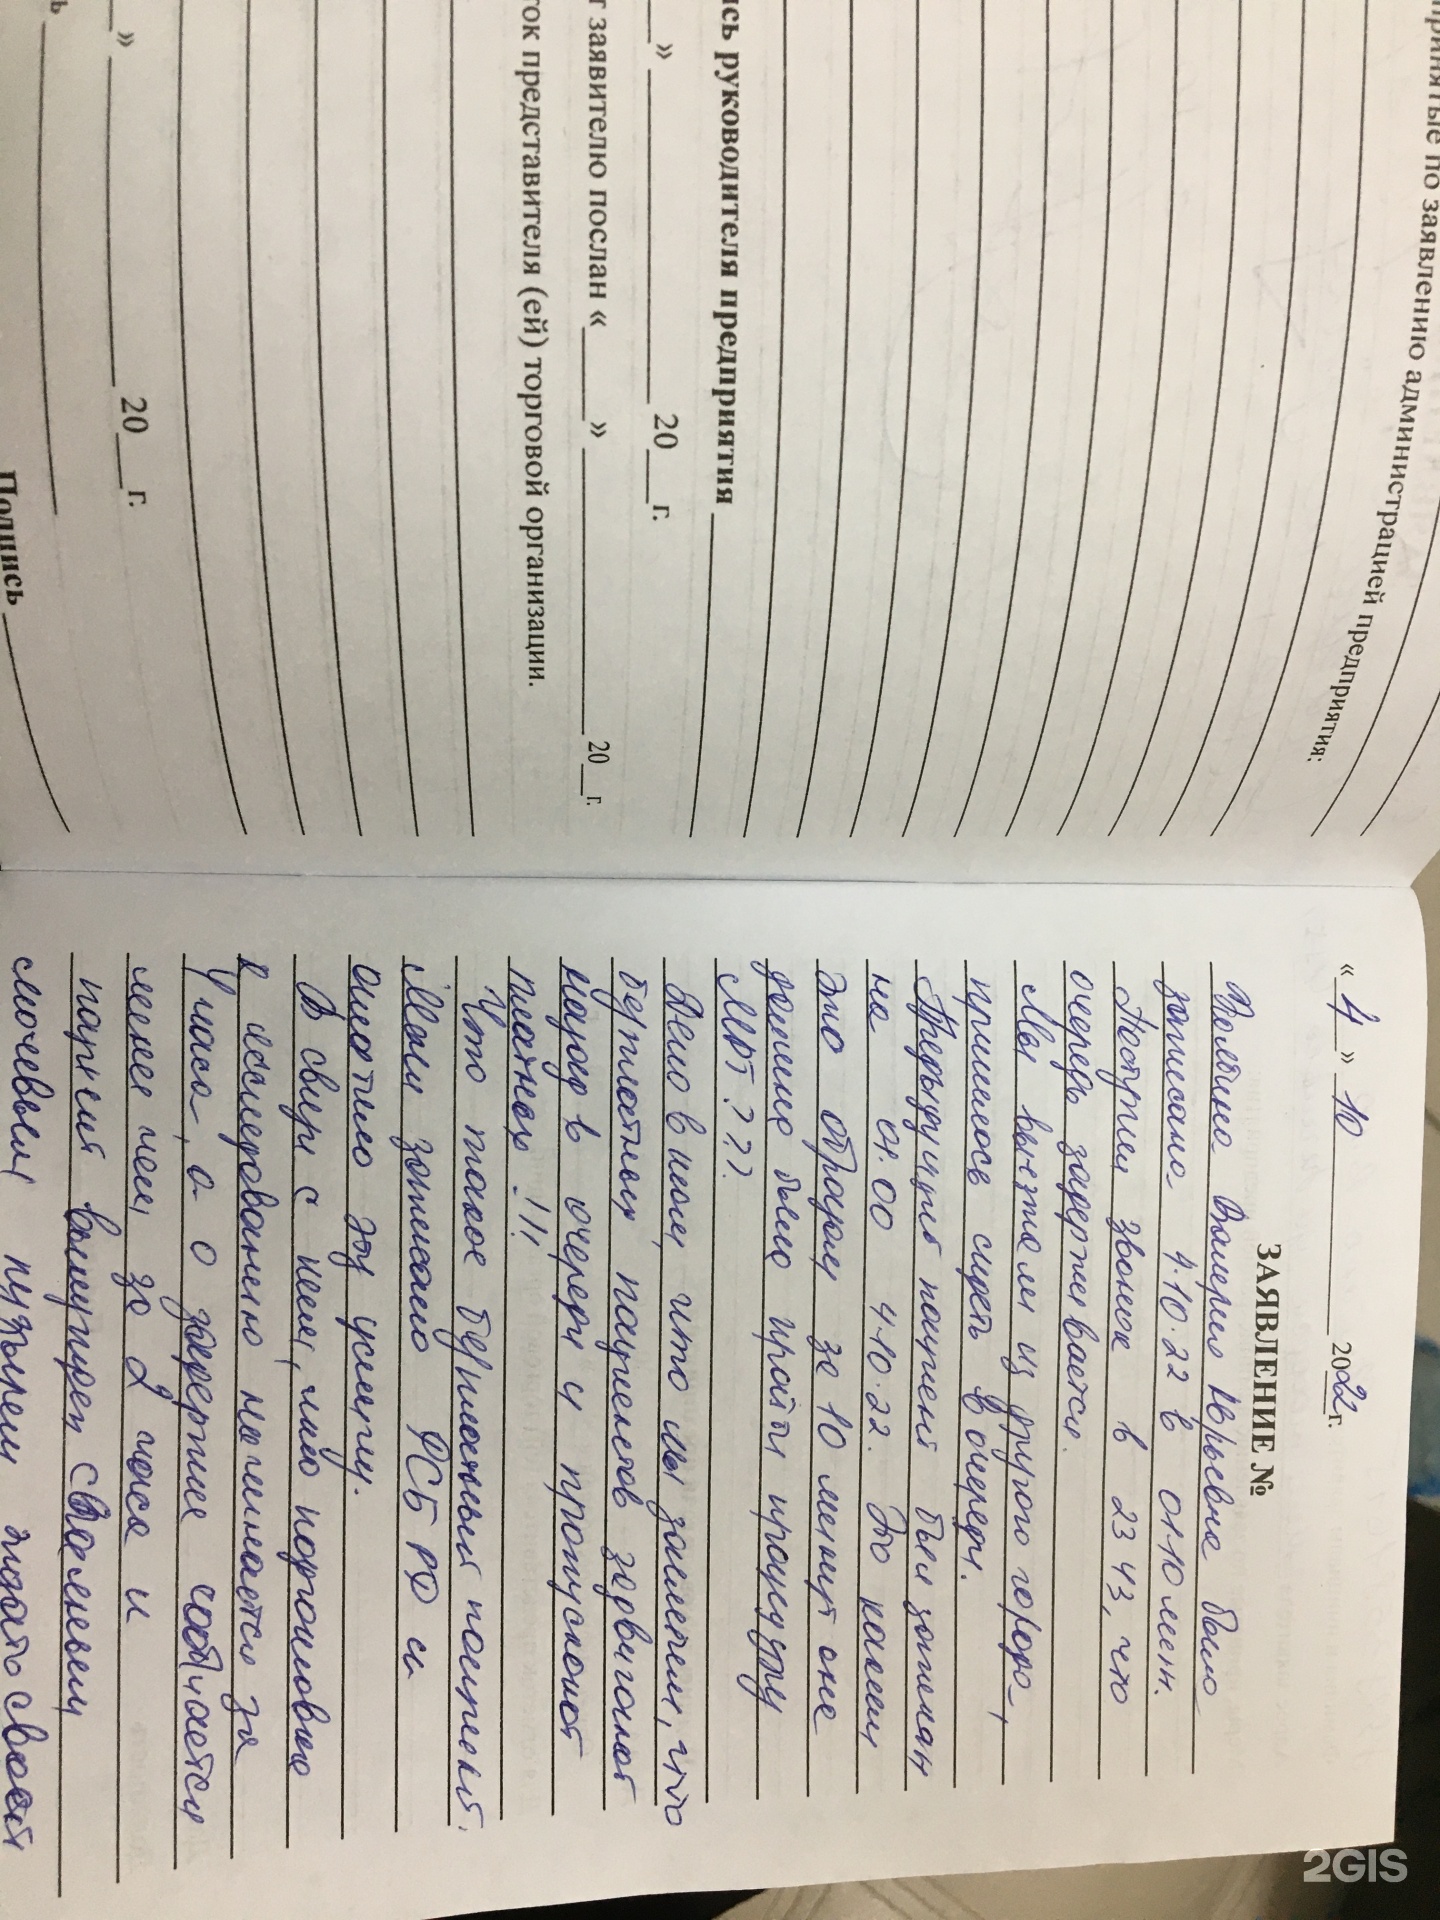 принятые по заявлению администрацией предприятия:
сь руководителя предприятия
» 20 г.
заявителю послан « » 20 г.
ток представителя (ей) торговой организации.
» 20 г.
ь
Подпись
« 4 » 10 2022г.
ЗАЯВЛЕНИЕ №
Валерия Юрьевна было
записана 4.10.22 в 01.10 мин.
Поступил звонок в 23 43, что
очередь задерживается.
Мы выехали из другого города,
пришлось сидеть в очереди.
Предыдущий пациент был записан
на 01.00 4.10.22. Это каким
Это образом за 10 минут она
должна была пройти процедуру
МРТ???
Дело в том, что мы заметили, что
бесплатных пациентов задвигают
назад в очереди и пропускают
платных!!!
Что такое бесплатный пациент.
Мали записано РСБ РД и
оплатило эту услугу.
В связи с чем, либо подготовка
к исследованию начинается за
4 часа, а о задержке сообщается
менее чем за 2 часа и
пациент вынужден с
мочевым пузырем ждать своей
2GIS